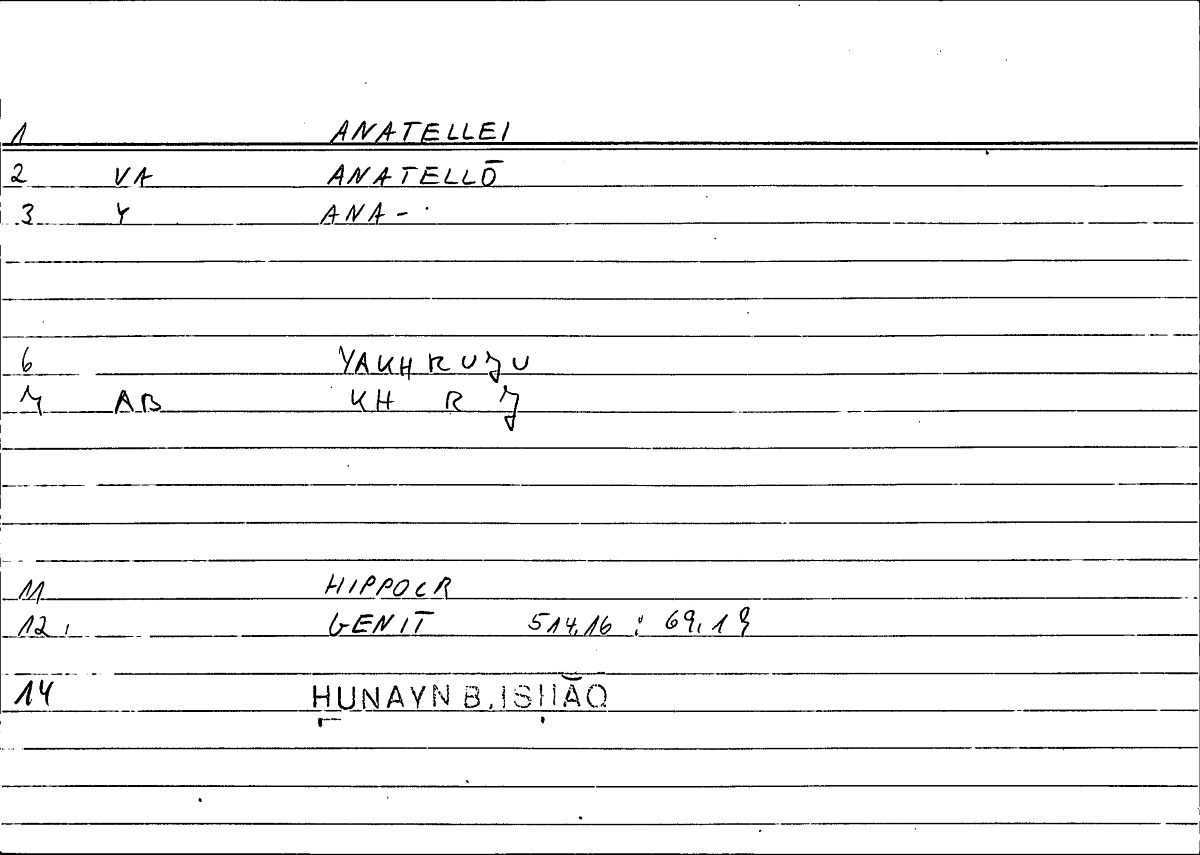 1 ANATELLEI
2 VA ANATELLŌ
3 Y ANA-
6 YAKHRUJU
7 AB KH R J
11 HIPPOCR
12 GENIT 514,16 : 69,19
14 HUNAYN B. ISḤĀQ